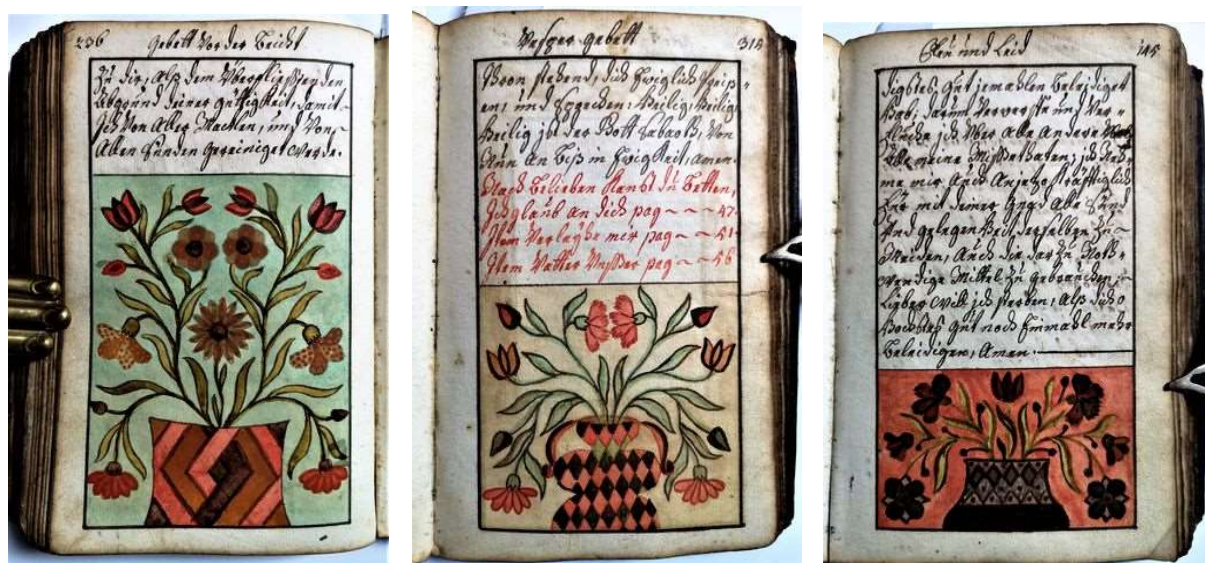 236 Gebett Vor der Beicht
Zu dir, Alß dem Vberfließenden
Abgrund deiner güttigkeit, damit
Ich Von Aller Macklen, und Von
Allen Sünden gereiniget werde.
Vesper gebett 314
Thron stehend, dich Ewiglich Preiß-
en; und Sprechen: Heilig, Heilig
Heilig ist der Gott Sabaoth, Von
Nun An Biß in Ewigkeit, amen.
Nach Belieben Kanst du Betten,
Ich glaub An dich pag ~ ~ ~ 47.
Item Verleyhe mir pag ~ ~ 51
Item Vatter Vnßer pag ~ ~ 56
Reu und Leid 145
digstes Gut jemahlen Beleidiget
Hab; darum Verwerffe und Ver-
fluche ich Vber Alle Andere
Alle meine Missethaten; ich Neh-
me mir Auch Anjetzo Kräfftiglich
Für mit deiner Gnad Alle Sünd
Und gelegenheit derselben Zu
Meiden, Auch die darzu Noth-
wendige Mittel Zu gebrauchen;
Lieber will ich sterben, Alß dich o
Höchstes Gut noch Einmahl mehr
Beleidigen, Amen.